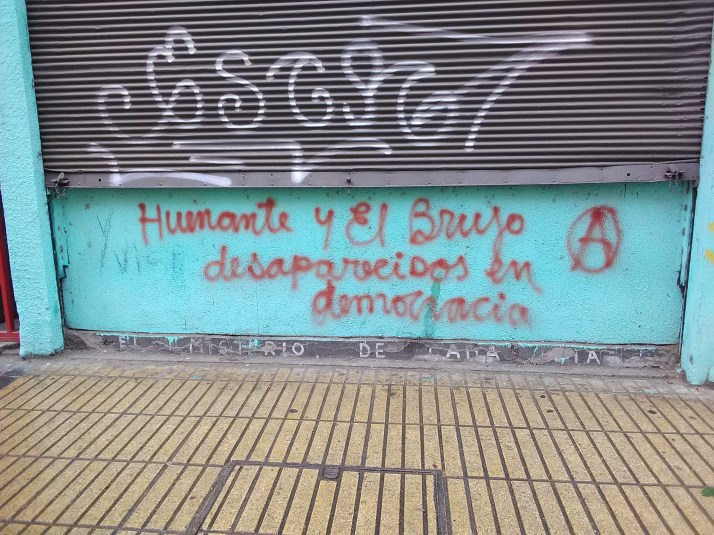 Humante y El Brujo
desaparecidos en
democracia
A
EL MISTERIO DE CADA DIA